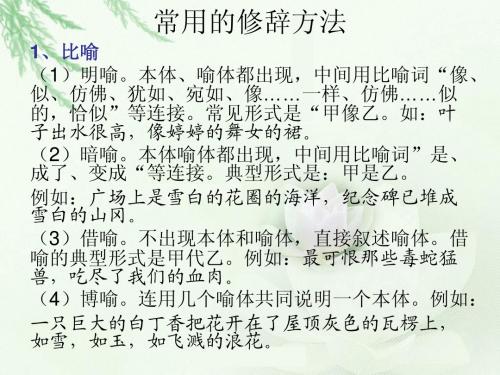 常用的修辞方法
1、比喻
（1）明喻。本体、喻体都出现，中间用比喻词“像、
似、仿佛、犹如、宛如、像……一样、仿佛……似
的，恰似”等连接。常见形式是“甲像乙。如：叶
子出水很高，像婷婷的舞女的裙。
（2）暗喻。本体喻体都出现，中间用比喻词”是、
成了、变成“等连接。典型形式是：甲是乙。
例如：广场上是雪白的花圈的海洋，纪念碑已堆成
雪白的山冈。
（3）借喻。不出现本体和喻体，直接叙述喻体。借
喻的典型形式是甲代乙。例如：最可恨那些毒蛇猛
兽，吃尽了我们的血肉。
（4）博喻。连用几个喻体共同说明一个本体。例如：
一只巨大的白丁香把花开在了屋顶灰色的瓦楞上，
如雪，如玉，如飞溅的浪花。